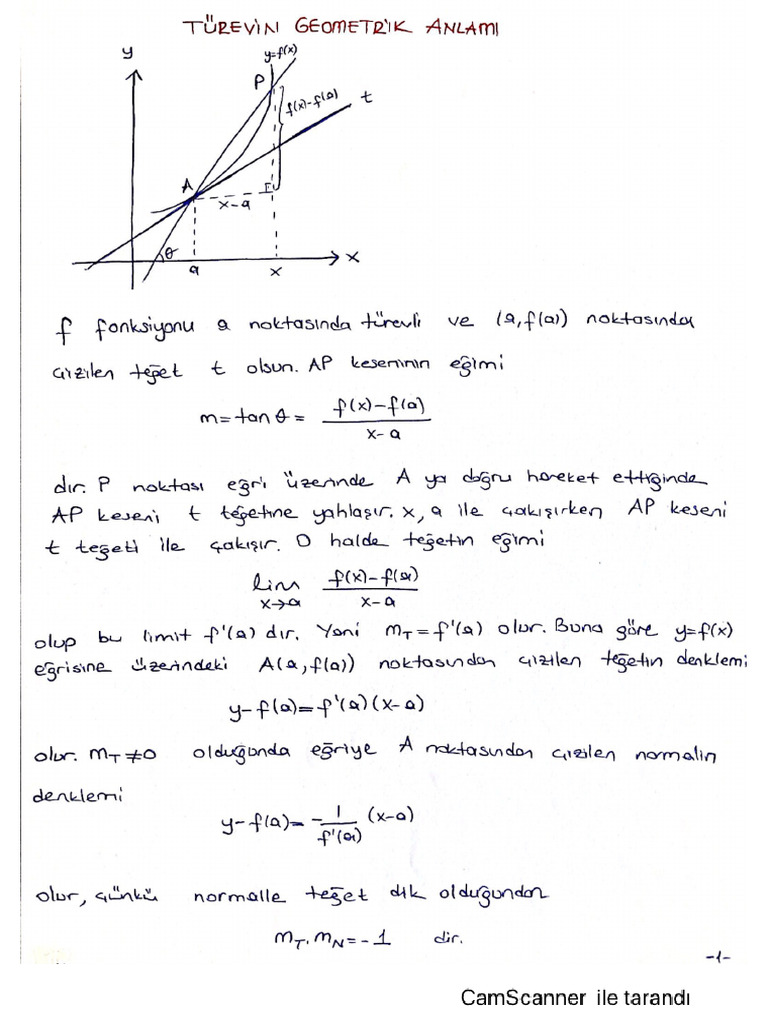 TÜREVİN GEOMETRİK ANLAMI
y
y=f(x)
P
f(x)-f(a)
t
A
x-a
θ
a
x
x
f fonksiyonu a noktasında türevli ve (a,f(a)) noktasından
çizilen teğet t olsun. AP keseninin eğimi
m=tanθ= f(x)-f(a) / x-a
dır. P noktası eğri üzerinde A ya doğru hareket ettiğinde
AP keseni t teğetine yaklaşır. x, a ile çakışırken AP keseni
t teğeti ile çakışır. O halde teğetin eğimi
lim x→a f(x)-f(a) / x-a
olup bu limit f'(a) dır. Yani m_T=f'(a) olur. Buna göre y=f(x)
eğrisine üzerindeki A(a,f(a)) noktasından çizilen teğetin denklemi
y-f(a)=f'(a)(x-a)
olur. m_T≠0 olduğunda eğriye A noktasından çizilen normalin
denklemi
y-f(a)=-1/f'(a) (x-a)
olur, çünkü normalle teğet dik olduğundan
m_T.m_N=-1 dir.
-1-
CamScanner ile tarandı